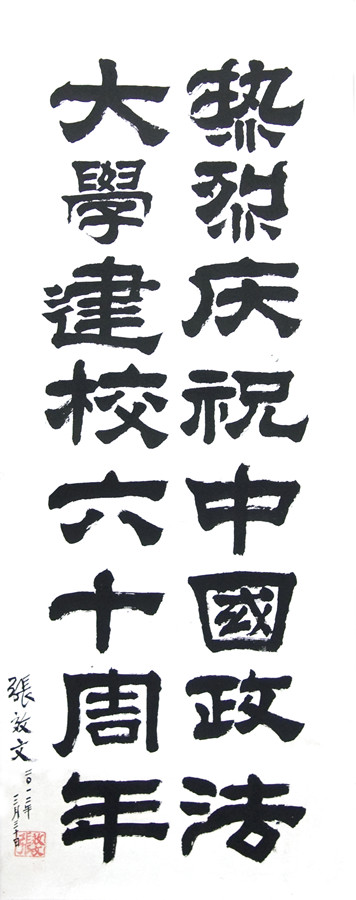 热烈庆祝中國政法
大學建校六十周年
張效文 二〇一二年
三月三十日